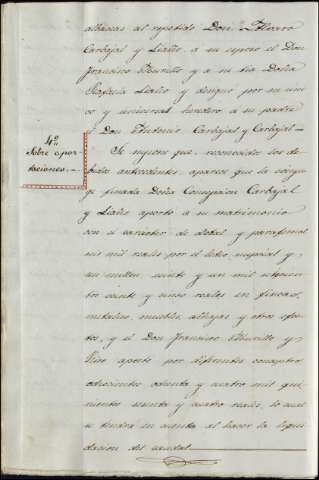 albaceas al repetido Don Alvaro
Carbajal y Liaño, a su esposo el Don
Francisco Murillo y a su tia Doña
Rafaela Liaño y designó por su uni
co y universal heredero a su padre
Don Antonio Carbajal y Carbajal
4º
Sobre apor
taciones.
Se supone que reconocidos los de
bidos antecedentes aparece que la conyu
ge finada Doña Concepcion Carbajal
y Liaño aportó a su matrimonio
con el carácter de dotal y parafernal
mil reales por el lecho nupcial y
un millon veinte y un mil
veinte y reales en fincas,
metalico, muebles, alhajas y otros efec
tos, y el Don Francisco Murillo y
aportó por diferentes conceptos
ochocientos ochenta y cuatro mil qui
nientos y cuatro reales, lo cual
se tendrá en cuenta al hacer la liqui
dacion del caudal